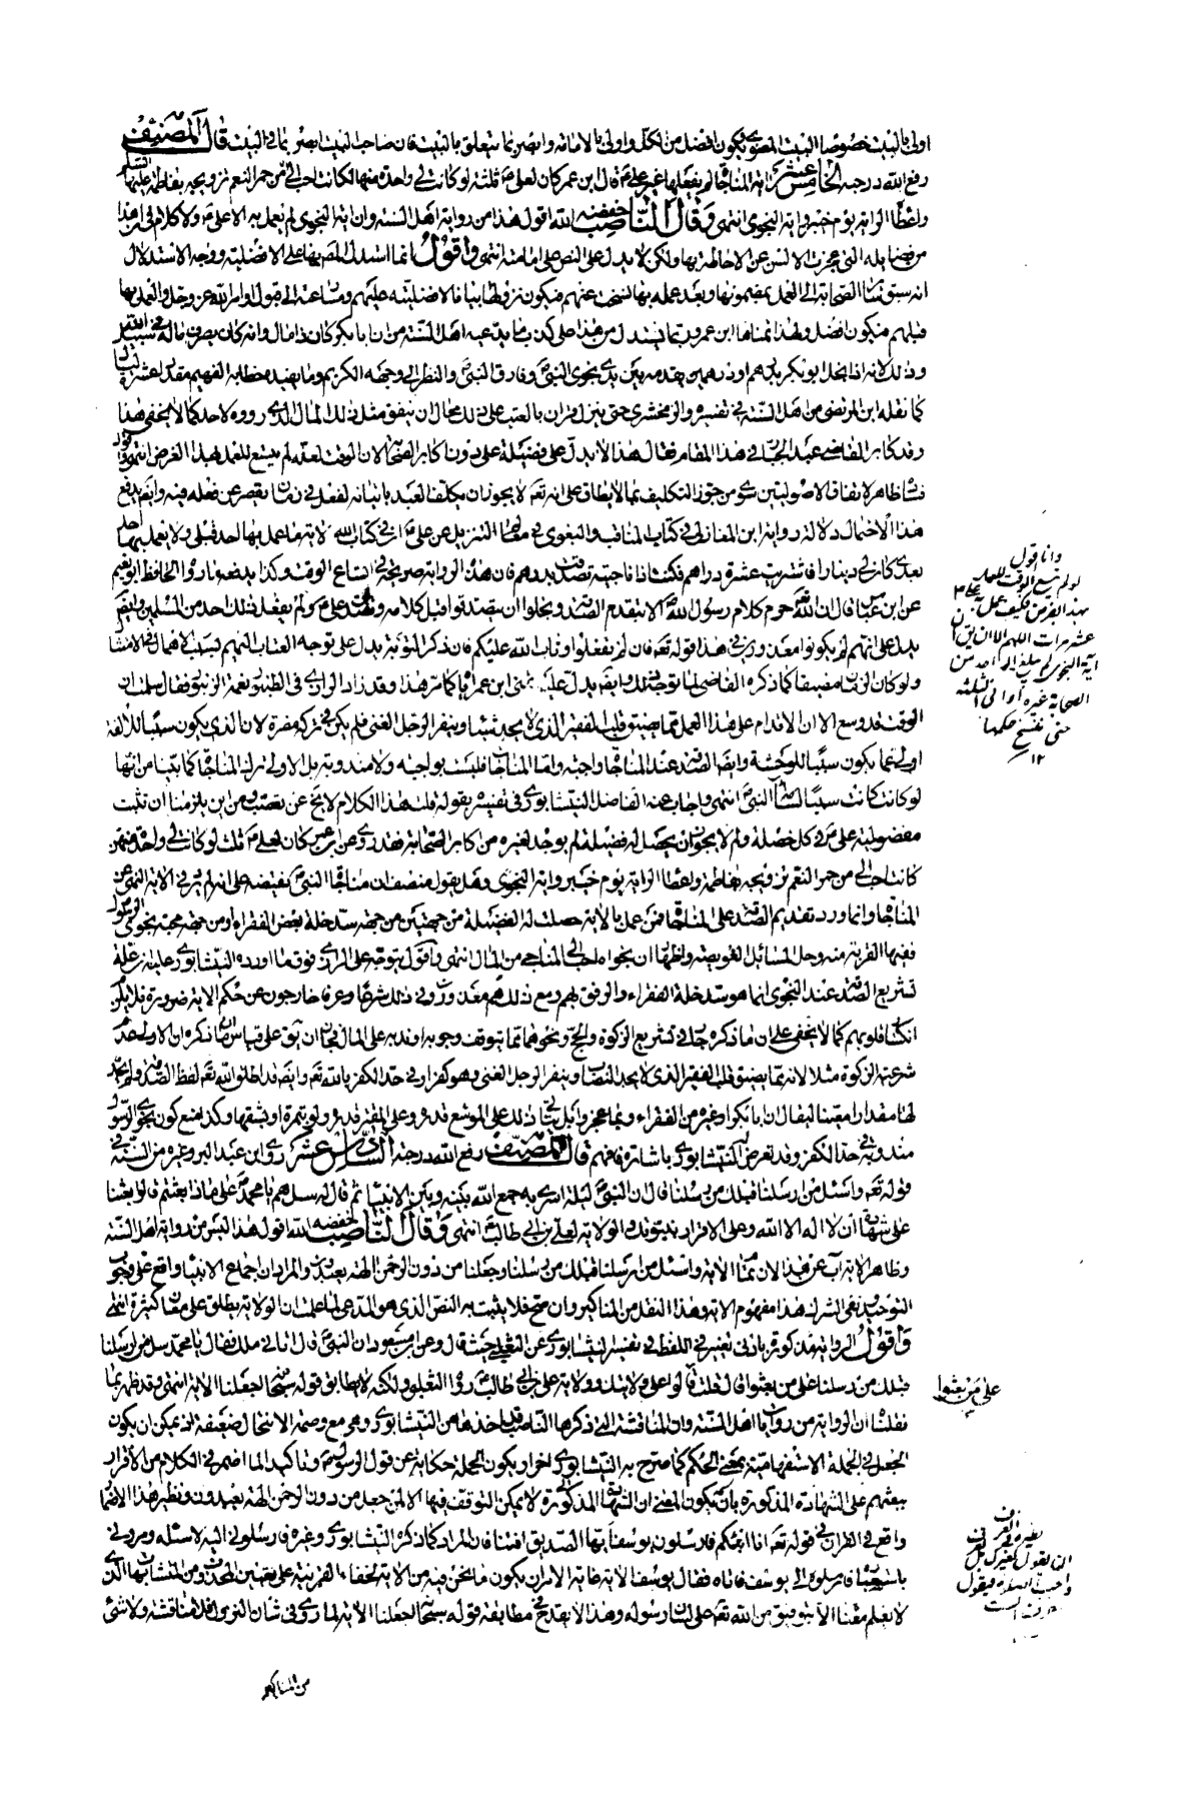 اولى بالبيت خصوصا البيت المعنوي يكون افضل من الكل واولى بالامامة وابصر بما يتعلق بالبيت فان صاحب البيت ابصر بما في البيت قال المصنف
رفع الله درجته الخامس عشر اية المناجاة لم يفعلها غير علي ع قال ابن عمر كان لعلي ع ثلثة لو كانت لي واحدة منها لكانت احب الي من حمر النعم تزويجه بفاطمة عليها السلم
واعطاؤه الراية يوم خيبر واية النجوى انتهى وقال الناصب خفضه الله اقول هذا من رواية اهل السنة وان اية النجوى لم يعمل بها الا علي ع ولا كلام في ان هذا
من فضايله التي عجزت الالسن عن الاحاطة بها ولكن لا يدل على النص على امامته انتهى واقول انما استدل المصنف بها على الافضلية ووجه الاستدلال
انه سبق سائر الصحابة الى العمل بمضمونها وبعد عمله بها نسخت عنهم فيكون
قبلهم فيكون افضل ولهذا تمناها ابن عمر وربما يستدل من هذا على كذب ما يدعيه اهل السنة من ان ابا بكر كان ذا مال وانه كان يصرف ماله في سبيل الله
وذلك لانه اذا بخل ابو بكر بدرهم او درهمين يقدمه بين يدي نجوى النبي ص وفارق النبي ص والنظر الى وجهه الكريم
كما نقله ابن المرتضى من اهل السنة في تفسيره والزمخشري حتى ينزل قران بالعتب على ذلك محال ان ينفق مثل ذلك المال الذي رووه لاحد كما لا يخفى هذا
وقد كابر القاضي عبد الجبار في هذا المقام فقال هذا لا يدل على فضيلة علي ع دون اكابر الصحابة لان الوقت لعله لم يتسع للعمل بهذا الغرض انتهى واقول
فساده ظاهر لاتفاق الاصوليين سوى من جوز التكليف بما لا يطاق على انه تعالى لا يجوز ان يكلف العبد باتيانه لفعل في زمان يقصر عن فعله فيه وايضا يدفع
هذا الاحتمال دلالة رواية ابن المغازلي في كتاب المناقب والبغوي في معالم التنزيل عن علي ع ان في كتاب الله لاية ما عمل بها احد قبلي ولا يعمل بها احد
بعدي كان لي دينار فاشتريت عشرة دراهم فكنت اذا ناجيته تصدقت بدرهم فان هذه الرواية صريحة في اتساع الوقت وكذا يدفعه ما رواه الحافظ ابو نعيم
عن ابن عباس قال ان الله حرم كلام رسول الله ص الا بتقدم الصدقة وبخلوا ان يتصدقوا قبل كلامه وتصدق علي ع ولم يفعل ذلك احد من المسلمين وايضا
يدل على انهم لم يكونوا معذورين في هذا قوله تعالى فان لم تفعلوا وتاب الله عليكم فان ذكر التوبة يدل على توجه العتاب اليهم بسبب
ولو كان الزمان مضيقا كما ذكره القاضي لما توجه ذلك وايضا يدل عليه تمني ابن عمر اياها كما مر هذا وقد زاد الرازي في الطنبور نغمة الزنبور فقال سلمنا ان
الوقت قد وسع الا ان الاقدام على هذا العمل مما يضيق قلب الفقير الذي لا يجد شيئا وينفر الرجل الغني فلم يكن في تركه مضرة لان الذي يكون سببا للالفة
اولى عما يكون سببا للوحشة وايضا الصدقة عند المناجاة واجبة واما المناجاة فليست بواجبة ولا مندوبة بل الاولى ترك المناجاة كما بينا من انها
لو كانت كانت سببا لسأمة النبي ص انتهى واجاب عنه الفاضل النيشابوري في تفسيره بقوله قلت هذا الكلام لا يخ عن تعصب ما ومن اين يلزمنا ان تثبت
مفضولية علي ع في كل خصلة ولم لا يجوز ان يحصل له فضيلة لم يوجد لغيره من اكابر الصحابة فقد روي عن ابن عمر كان لعلي ع ثلث لو كانت لي واحدة منهن
كانت احب الي من حمر النعم تزويجه بفاطمة واعطاؤه الراية يوم خيبر واية النجوى وهل يقول منصف ان مناجاة النبي ص نقيصة على انه لم يرد في الاية النهي عن
المناجاة وانما ورد تقديم الصدقة على المناجاة فمن عمل بالاية حصلت له الفضيلة من جهتين من جهة سد خلة بعض الفقراء ومن جهة محبة نجوى الرسول
ففيها القربة منه وحل المسائل العويصة واظهار ان نجواه احب الى المناجي من المال انتهى واقول يتوجه على الرازي فوق ما اورده النيشابوري عليه ان علة
تشريع الصدقة عند النجوى انما هو سد خلة الفقراء والرفق بهم ومع ذلك هم معذورون في ذلك شرعا وعرفا خارجون عن حكم الاية ضرورة فلا يكون
انكسار قلوبهم كما لا يخفى على ان ما ذكره جار في تشريع الزكوة والحج ونحوهما مما يتوقف وجوبه او ندبه على المال فيجب ان يق على قياس ما ذكره ان الاولى عدم
شرعية الزكوة مثلا لانه مما يضيق قلب الفقير الذي لا يجد النصاب وينفر الرجل الغني وهو كفر او في حد الكفر بالله تعالى وايضا قد اطلق الله تعالى لفظ الصدقة ولم يحد
لها مقدارا معينا ليقال ان ابا بكر او غيره من الفقراء ربما عجزوا بل
مندوبة في حد الكفر وقد تعرض له النيشابوري باشارة فافهم قال المصنف رفع الله درجته السادس عشر روى ابن عبد البر وغيره من السنة في
قوله تعالى واسئل من ارسلنا قبلك من رسلنا قال ان النبي ص ليلة اسري به جمع الله بينه وبين الانبياء ثم قال له سلهم يا محمد ص على ماذا بعثتم قالوا بعثنا
على شهادة ان لا اله الا الله وعلى الاقرار بنبوتك والولاية لعلي بن ابي طالب ع انتهى وقال الناصب خفضه الله اقول هذا ليس من رواية اهل السنة
وظاهر الاية آب عن هذا لان تمام الاية واسئل من ارسلنا قبلك من رسلنا اجعلنا من دون الرحمن الهة يعبدون والمراد ان اجماع الانبياء واقع على وجوب
التوحيد ونفي الشرك هذا مفهوم الاية وهذا النقل من المناكير وان صح فلا يثبت به النص الذي هو المدعى لما علمت ان الولاية يطلق على معان كثيرة انتهى
واقول الرواية مذكورة بادنى تغيير في اللفظ في تفسير النيشابوري عن الثعلبي حيث قال وعن ابن مسعود ان النبي ص قال اتاني ملك فقال يا محمد سل من ارسلنا
قبلك من رسلنا على من بعثوا قال قلت قالوا على ولايتك وولاية علي بن ابي طالب ع رواه الثعلبي ولكنه لا يطابق قوله سبحانه اجعلنا الاية انتهى وقد ظهر بما
نقلناه ان الرواية من روايات اهل السنة وان المناقشة التي ذكرها الناصب قد اخذها من النيشابوري وهي مع وصمة الانتحال ضعيفة اذ يمكن ان يكون
الجعل في الجملة الاستفهامية بمعنى الحكم كما صرح به النيشابوري اخرا ويكون الجملة حكاية عن قول الرسول ص وتاكيدا لما اضمر في الكلام من الاقرار
ببعثهم على الشهادة المذكورة بان يكون المعنى ان الشهادة المذكورة لا يمكن التوقف فيها الا لمن جعل من دون الرحمن الهة يعبدون ونظير هذا الاضمار
واقع في القران في قوله تعالى انا انبئكم فارسلون يوسف ايها الصديق افتنا فان المراد كما ذكره النيشابوري وغيره فارسلوني اليه لاسئله ومروني
باستعباره فارسلوه الى يوسف فاتاه فقال يوسف الاية غاية الامر ان يكون ما نحن فيه من الاية لخفاء القرينة على تعيين المحذوف من المتشابهات التي
لا يعلم معناها الا بتوفيق من الله تعالى على لسان رسوله وهذا لا يقدح في مطابقة قوله سبحانه اجعلنا الاية لما روي في شان النزول فلا مناقشة ولا شئ
من المناكير
وانا اقول
لو لم يتسع الوقت للعمل
بهذا الفرض فكيف عمل به علي ع
عشر مرات اللهم الا ان يق ان
اية النجوى لم يبلغ الى احد من
الصحابة غيره او الى الثلثة
حتى نسخ حكمها
١٢
على من بعثوا